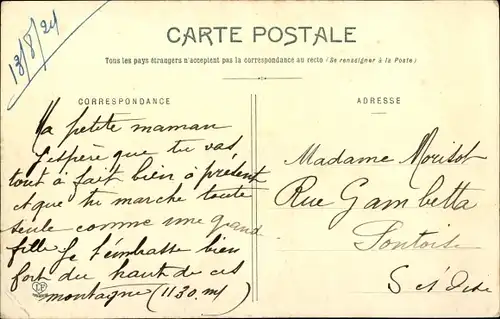 13/8/24
CARTE POSTALE
Tous les pays étrangers n'acceptent pas la correspondance au recto (Se renseigner à la Poste)
CORRESPONDANCE
Ma petite maman
J'espère que tu vas
tout à fait bien à présent
et que tu marche toute
seule comme une grand
fille Je t'embrasse bien
fort du haut de ces
montagne (1130 m)
ADRESSE
Madame Morisot
Rue Gambetta
Pontoise
S et Oise